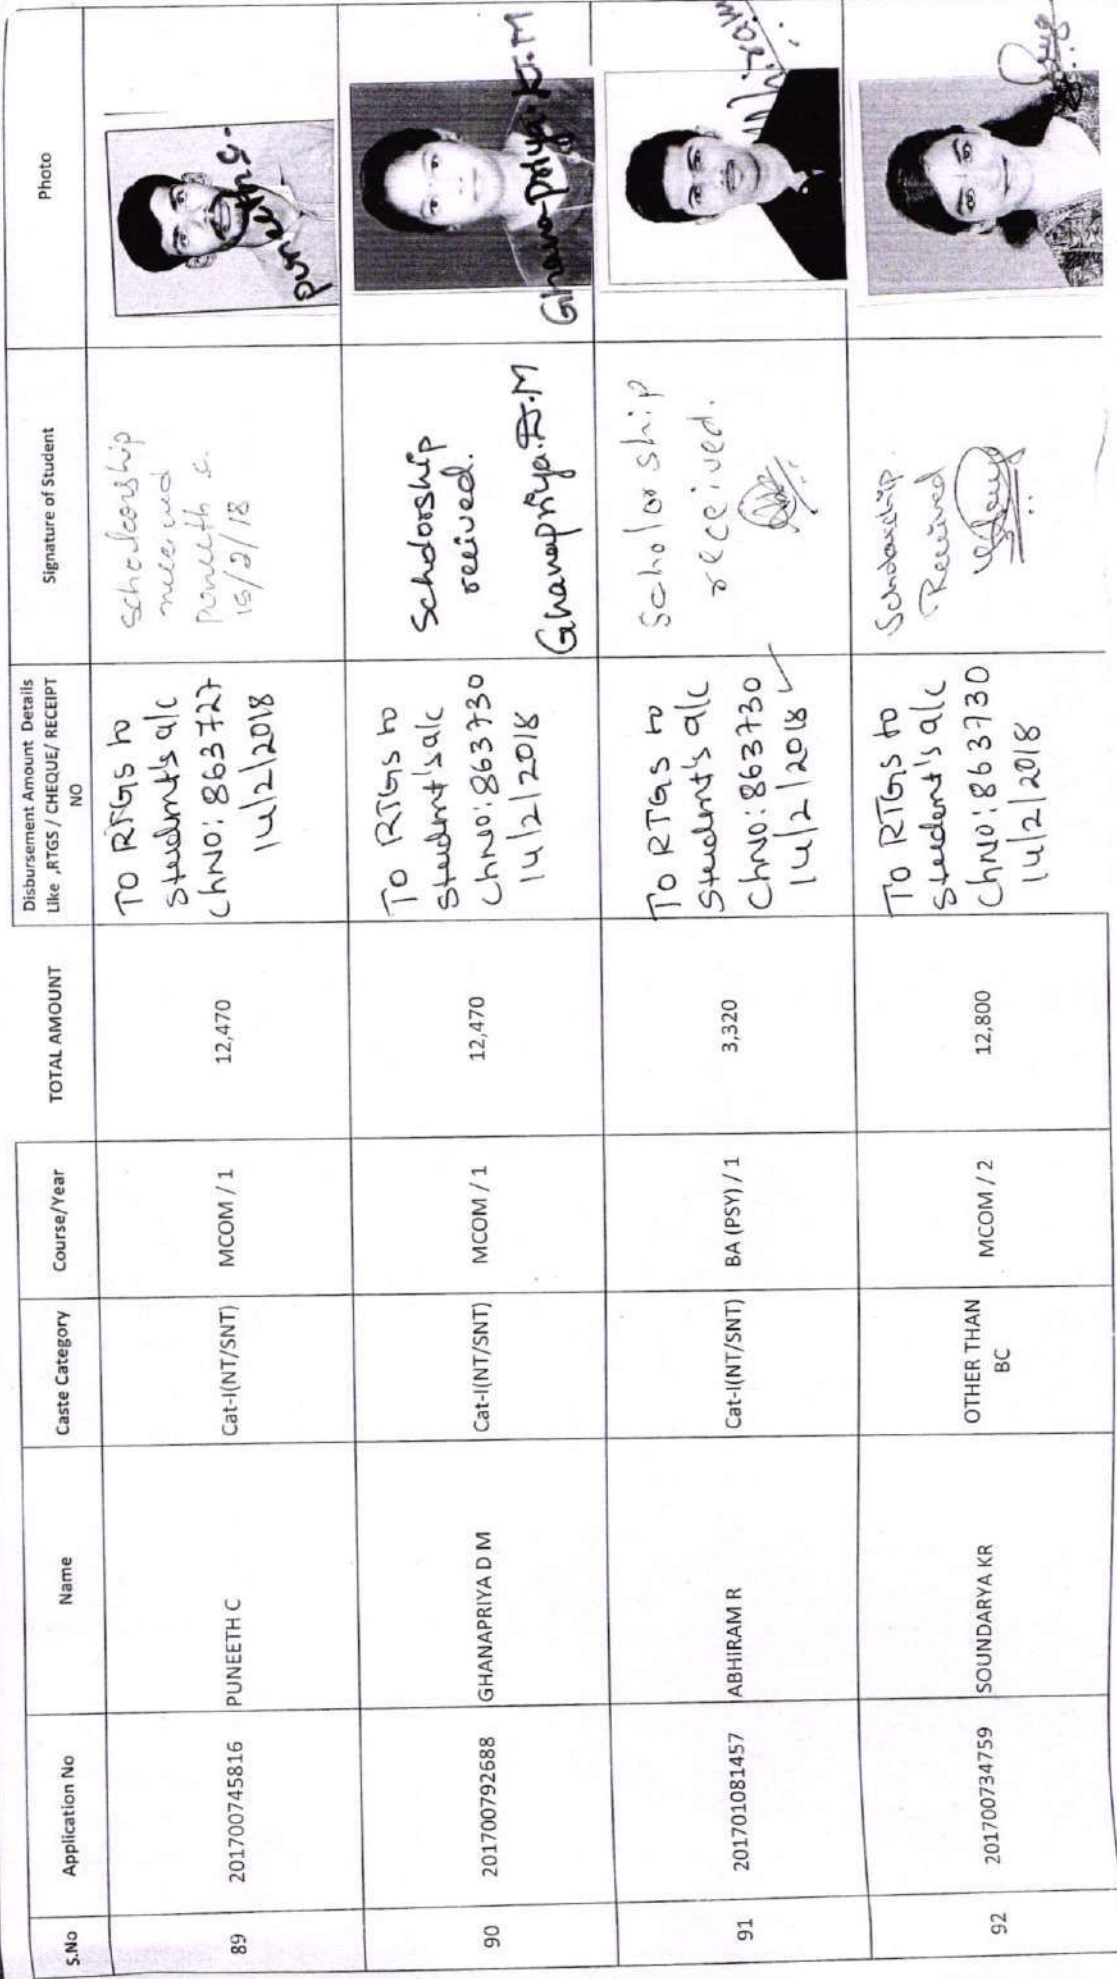 S.No
Application No
Name
Caste Category
Course/Year
TOTAL AMOUNT
Disbursement Amount Details
Like ,RTGS / CHEQUE/ RECEIPT
NO
Signature of Student
Photo
89
201700745816
PUNEETH C
Cat-I(NT/SNT)
MCOM / 1
12,470
To RTGS to
Student's a/c
ChNo: 863727
14/2/2018
Scholorship
Puneeth c.
15/2/18
Puneeth c.
90
201700792688
GHANAPRIYA D M
Cat-I(NT/SNT)
MCOM / 1
12,470
To RTGS to
Student's a/c
ChNo: 863730
14/2/2018
Scholorship
received.
Ghanapriya.D.M
Ghanapriya.D.M
91
201701081457
ABHIRAM R
Cat-I(NT/SNT)
BA (PSY) / 1
3,320
To RTGS to
Student's a/c
ChNo: 863730
14/2/2018
Scholorship
received.
92
201700734759
SOUNDARYA KR
OTHER THAN
BC
MCOM / 2
12,800
To RTGS to
Student's a/c
ChNo: 863730
14/2/2018
Scholarship
Received